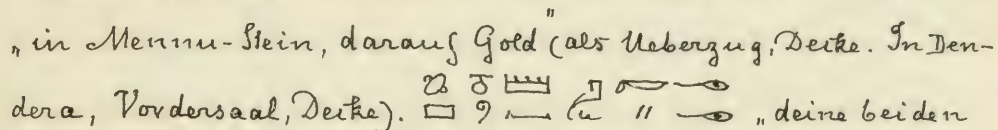 „in Mennu-Stein, darauf Gold" (als Ueberzug, Decke. In Den-
dera, Vordersaal, Decke). „deine beiden